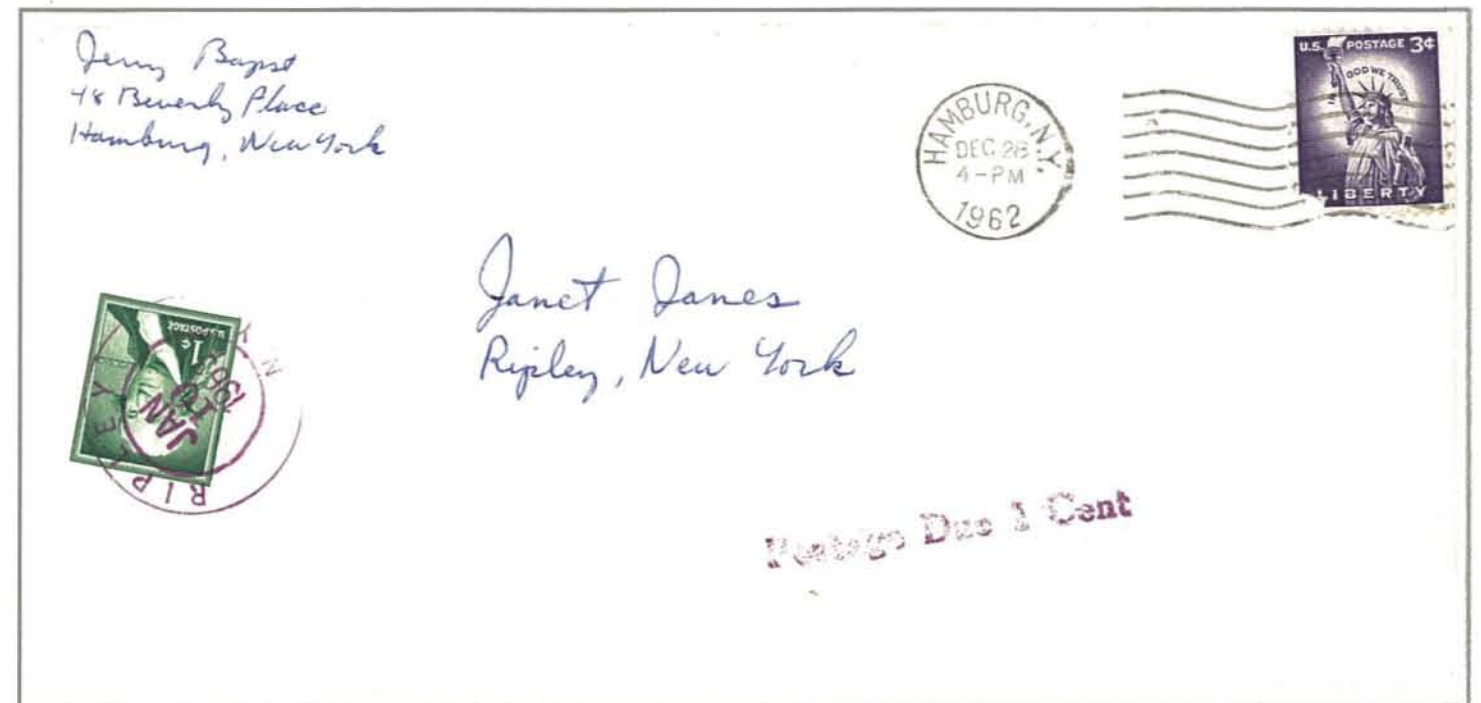 Jerry Bapst
48 Beverly Place
Hamburg, New York
HAMBURG, N.Y.
DEC 28
4-PM
1962
U.S. POSTAGE 3¢
IN GOD WE TRUST
LIBERTY
Janet Janes
Ripley, New York
U.S. POSTAGE
1¢
RIPLEY N Y
JAN
Postage Due 1 Cent